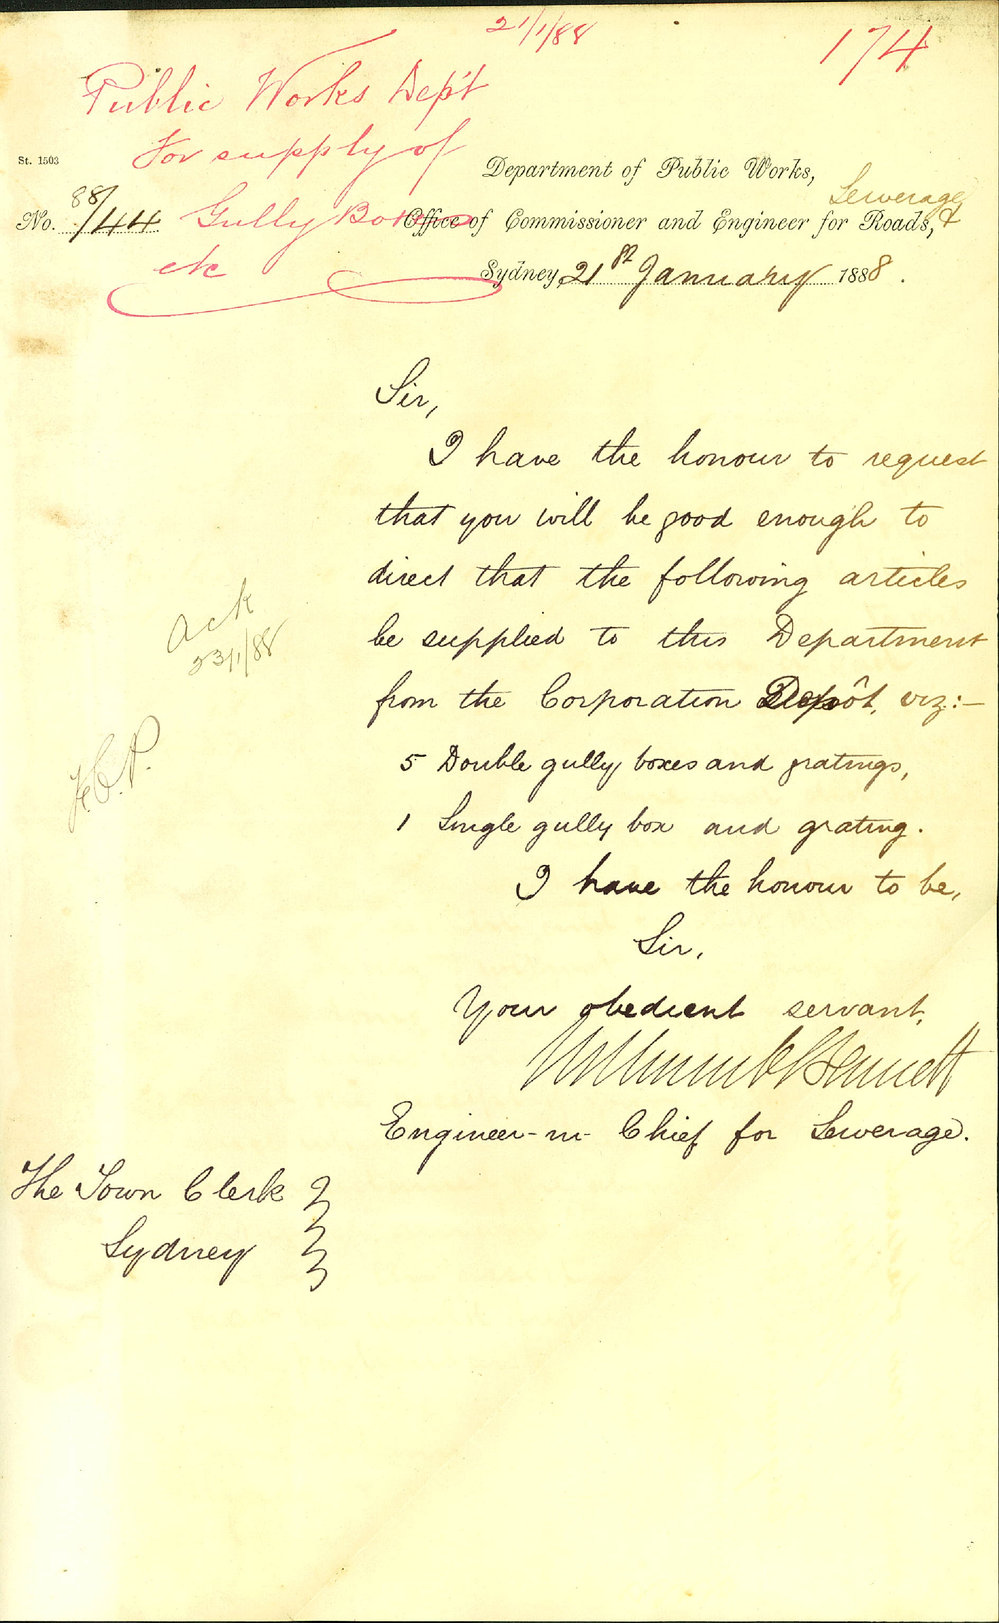 21/1/88
174
Public Works Dep't
For supply of
Gully Boxes
etc
St. 1503
No. 88/44
Department of Public Works,
Office of Commissioner and Engineer for Roads, & Sewerage
Sydney, 21st January 1888.
Sir,
I have the honour to request
that you will be good enough to
direct that the following articles
be supplied to this Department
from the Corporation Depôt, viz:—
5 Double gully boxes and gratings,
1 Single gully box and grating.
I have the honour to be,
Sir,
Your obedient servant,
Bennett
Engineer-in-Chief for Sewerage.
Ack
23/1/88
The Town Clerk
Sydney